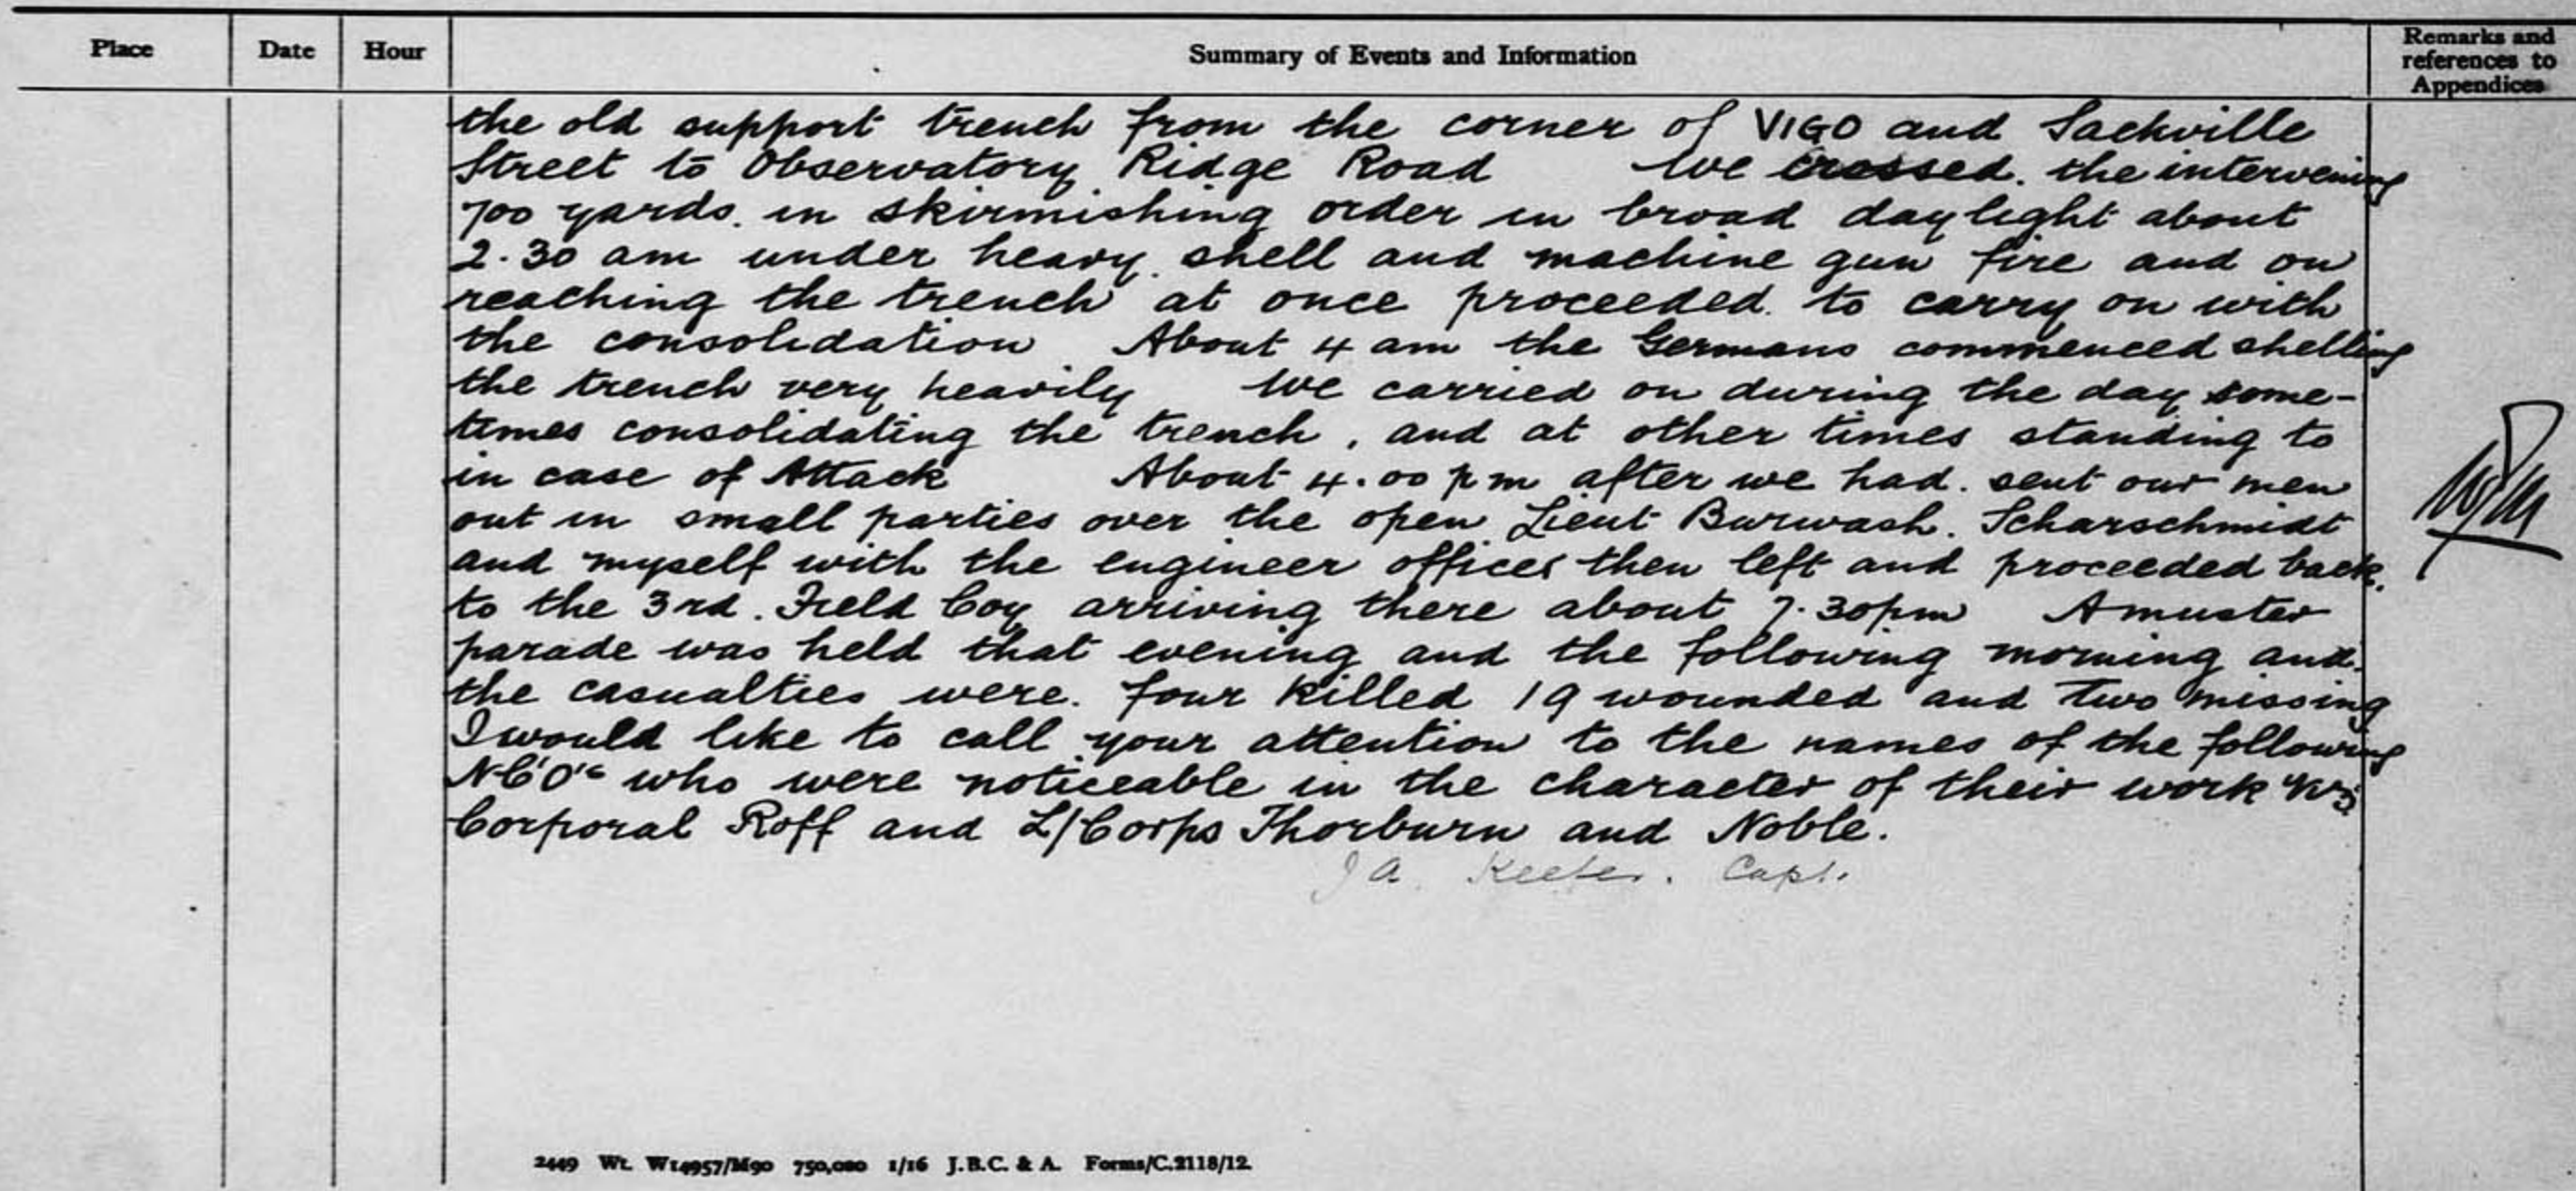 Place Date Hour Summary of Events and Information Remarks and references to Appendices
the old support trench from the corner of VIGO and Sackville
Street to Observatory Ridge Road We crossed. the intervening
700 yards. in skirmishing order in broad daylight about
2.30 am under heavy shell and machine gun fire and on
reaching the trench at once proceeded. to carry on with
the consolidation About 4 am the Germans commenced shelling
the trench very heavily We carried on during the day some-
times consolidating the trench, and at other times standing to
in case of Attack About 4.00 pm after we had. sent our men
out in small parties over the open Lieut Burwash. Scharschmidt
and myself with the engineer offices then left and proceeded back.
to the 3rd. Field Coy arriving there about 7.30pm A muster
parade was held that evening and the following morning and.
the casualties were. four killed 19 wounded and two missing
I would like to call your attention to the names of the following
N.C.O's who were noticeable in the character of their work
Corporal Roff and L/Corps Thorburn and Noble.
J A. Keefer. Capt.
2449 Wt. W14957/M90 750,000 1/16 J.B.C. & A. Forms/C.2118/12.